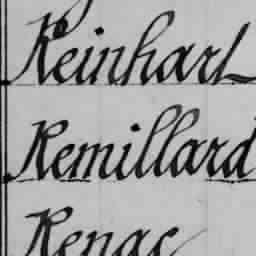 Reinhart
Remillard
Renac